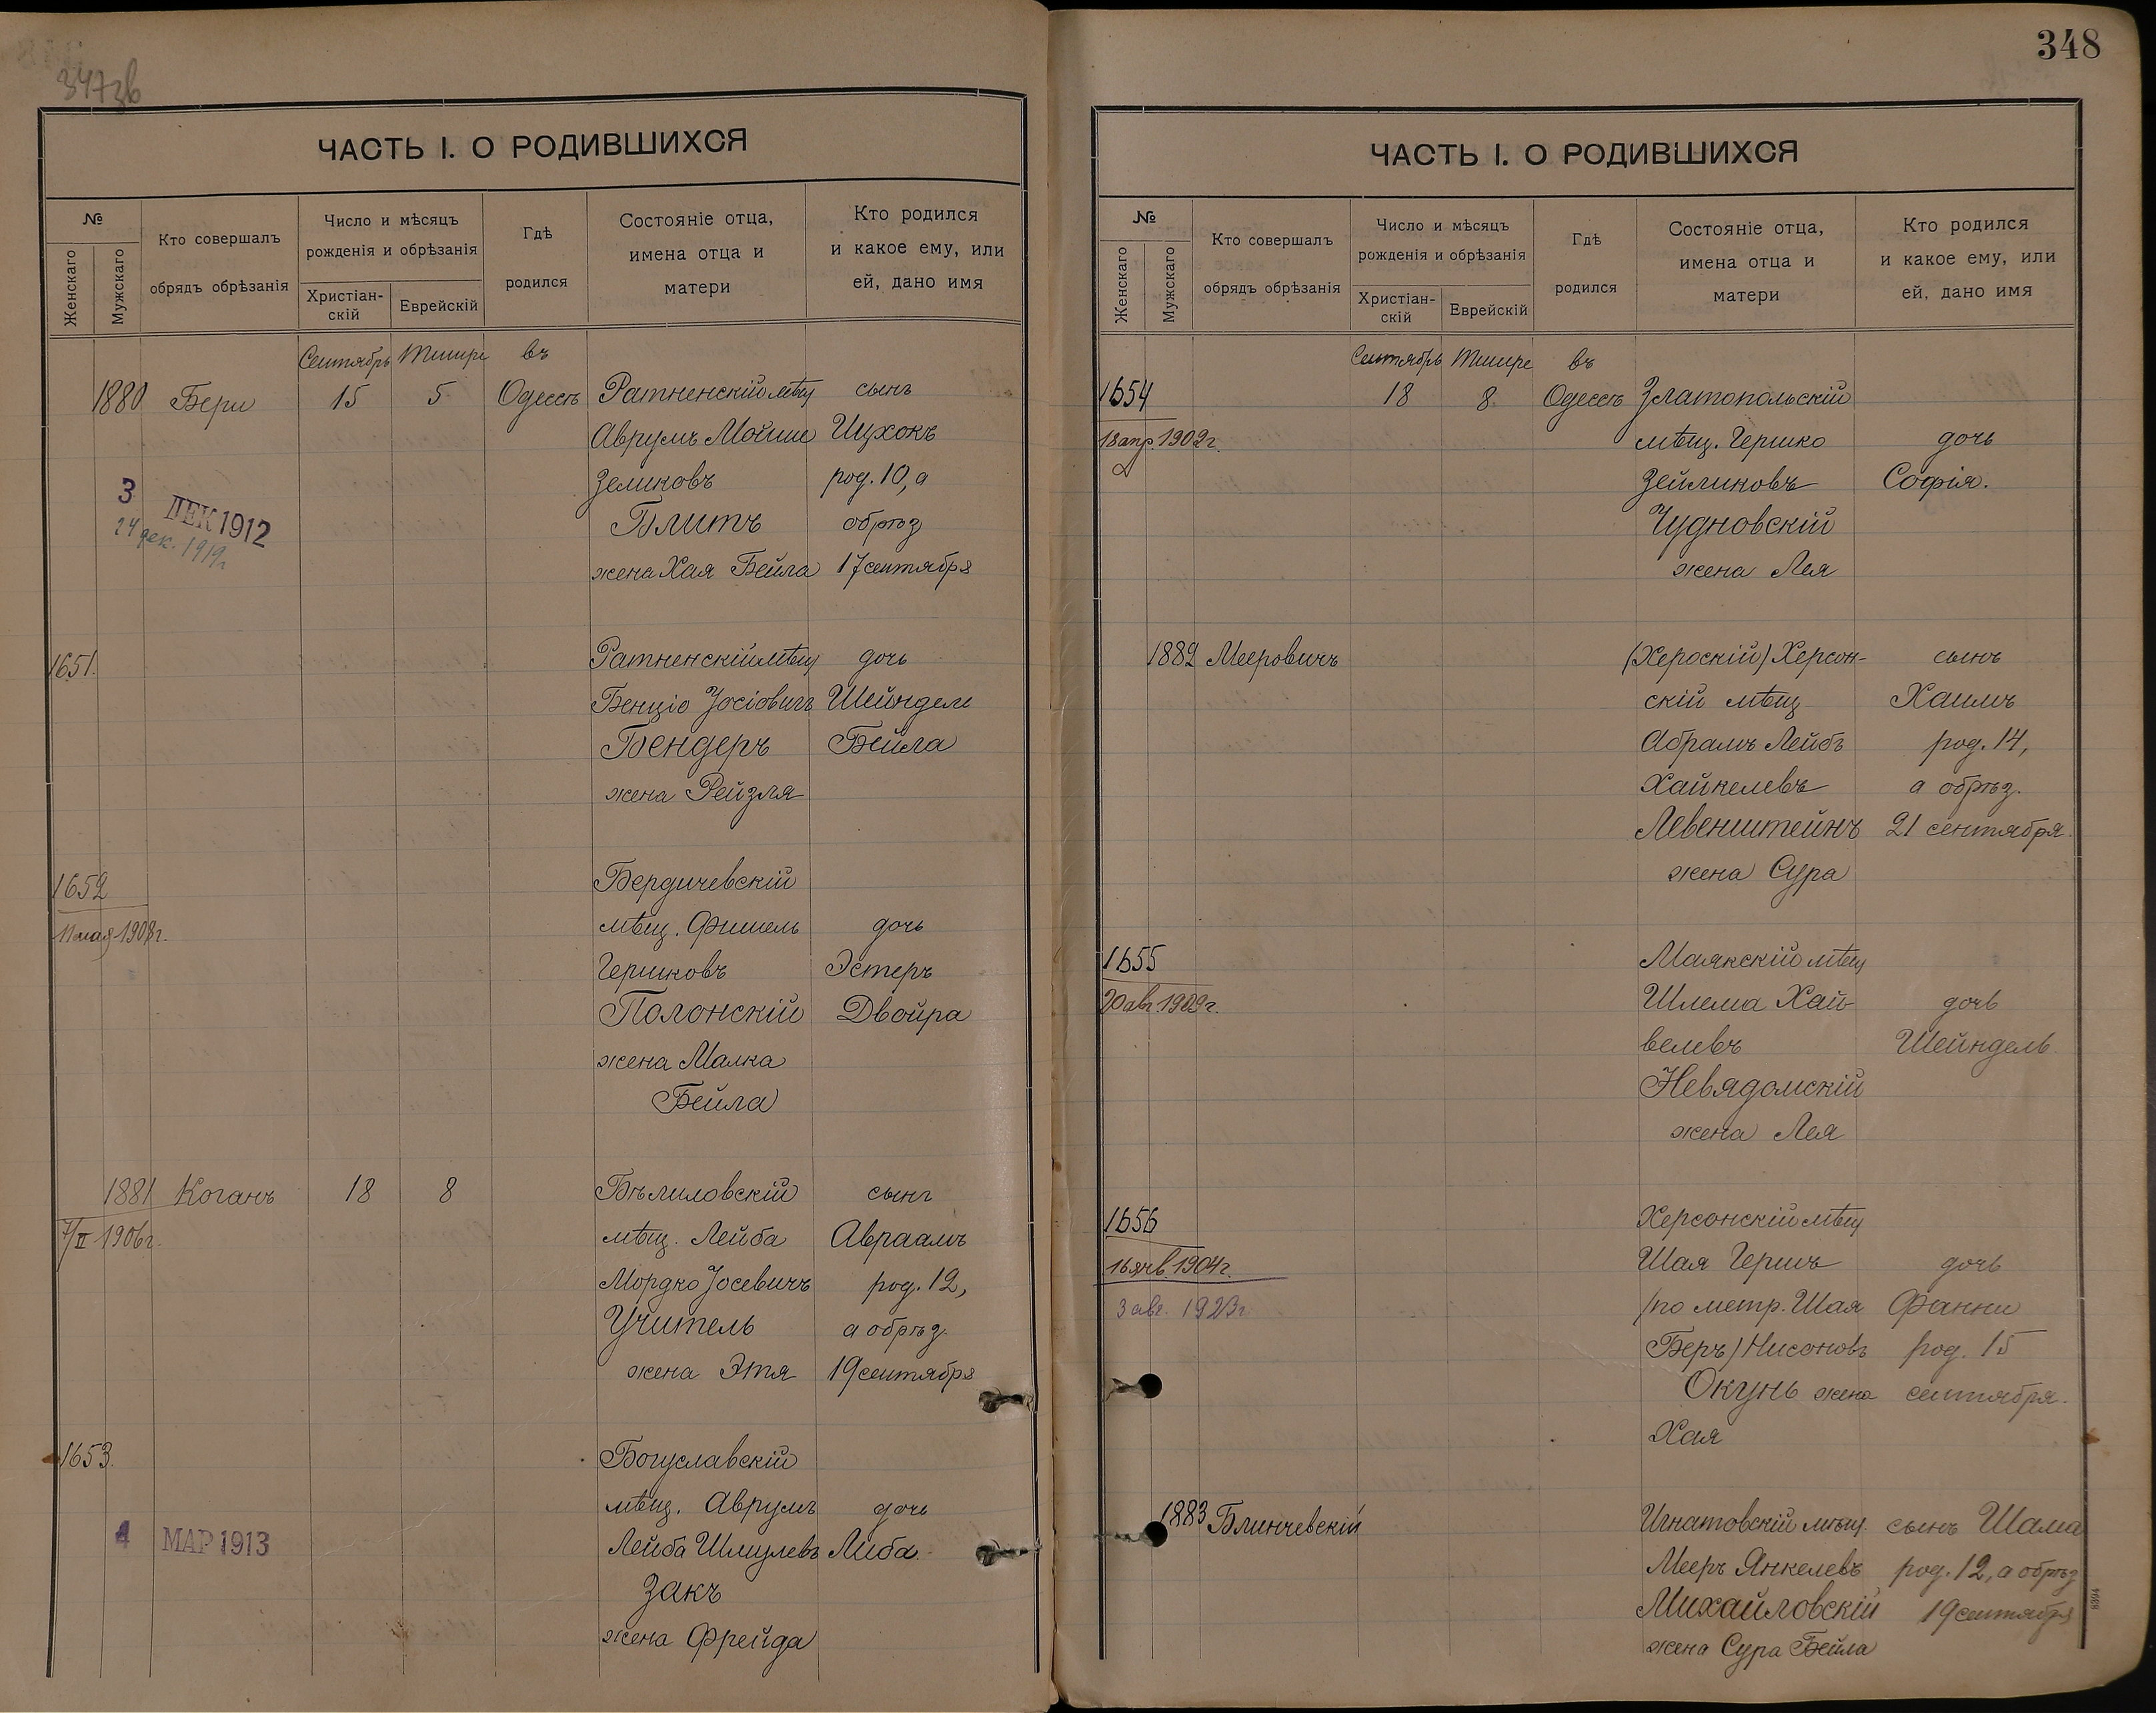 347зв
ЧАСТЬ I. О РОДИВШИХСЯ
№
Женскаго
Мужскаго
Кто совершалъ
обрядъ обрѣзанія
Число и мѣсяцъ
рожденія и обрѣзанія
Христіан-
скій
Еврейскій
Гдѣ
родился
Состояніе отца,
имена отца и
матери
Кто родился
и какое ему, или
ей, дано имя
Сентябрь Тишре въ
1880 Бери 15 5 Одессѣ Ратненскій мѣщ сынъ
Аврумъ Мойше Ицхокъ
Зеликовъ род. 10, а
3 ДЕК 1912 Блитъ обрѣз
24 дек. 1919г
жена Хая Бейла 17 сентября
1651. Ратненскій мѣщ дочь
Бенціо Іосіовичъ Шейндля
Бендеръ Бейла
жена Рейзля
1652 Бердичевскій
11 мая 1908г. мѣщ. Фишель дочь
Гершковъ Эстеръ
Полонскій Двойра
жена Малка
Бейла
1881 Коганъ 18 8 Бѣлиловскій сынъ
7/II 1906г. мѣщ. Лейба Авраамъ
Мордко Іосевичъ род. 12,
Учитель а обрѣз.
жена Этя 19 сентября
1653. Богуславскій
мѣщ. Аврумъ дочь
4 МАР 1913 Лейба Шмулевъ Либа.
Закъ
жена Фрейда
348
ЧАСТЬ I. О РОДИВШИХСЯ
№
Женскаго
Мужскаго
Кто совершалъ
обрядъ обрѣзанія
Число и мѣсяцъ
рожденія и обрѣзанія
Христіан-
скій
Еврейскій
Гдѣ
родился
Состояніе отца,
имена отца и
матери
Кто родился
и какое ему, или
ей, дано имя
Сентябрь Тишре въ
1654 18 8 Одессѣ Златопольскій
18 апр. 1902г. мѣщ. Гершко дочь
Зейликовъ Софія.
Чудновскій
жена Лея
1882 Мееровичъ (Хероскій) Херсон- сынъ
скій мѣщ Хаимъ
Абрамъ Лейбъ род. 14,
Хайкелевъ а обрѣз.
Левенштейнъ 21 сентября.
жена Сура
1655 Маякскій мѣщ
20 авг. 1909г. Шлема Хай- дочь
велевъ Шейндель
Невядомскій
жена Лея
1656 Херсонскій мѣщ
16 янв. 1904г. Шая Гершъ дочь
3 авг. 1923г. (по метр. Шая Фанни
Беръ) Нисоновъ род. 15
Окунь жена сентября.
Хая
1883 Блинчевскій Игнатовскій мѣщ. сынъ Шама
Мееръ Янкелевъ род. 12, а обрѣз
Михайловскій 19 сентября
жена Сура Бейла
8394